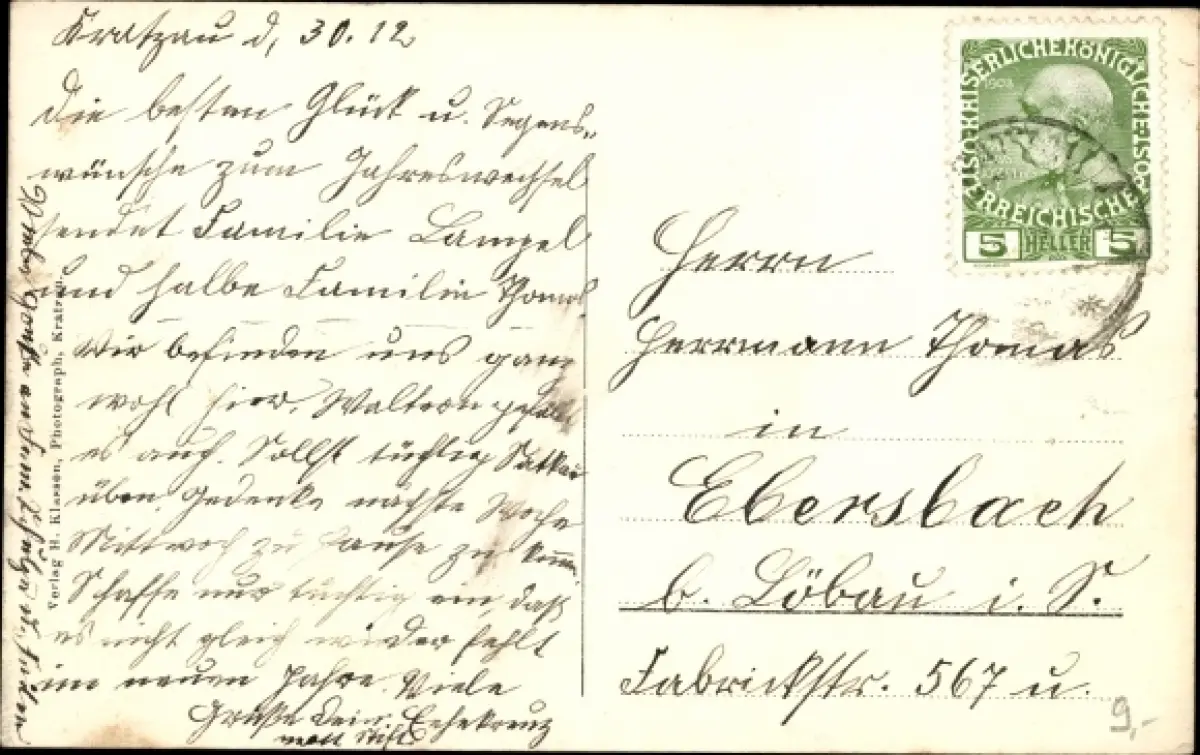 Kratzau d. 30.12
Die besten Glück u. Segens„
wünsche zum Jahreswechsel
sendet Familie Lampel
und halbe Familie Thomas
Wir befinden uns ganz
wohl hier. Waltern gefällt
es auch. Sollst tüchtig
üben. Gedenke nächste Woche
Mittwoch zu Hause zu
Schaffe nur tüchtig ein, daß
es nicht gleich wieder fehlt
im neuen Jahre. Viele
Grüße Dein
Verlag H. Klassen, Photograph, Kratzau
KAISERLICHE KÖNIGLICHE ÖSTERREICHISCHE POST
5 HELLER 5
Herrn
Herrmann Thomas
in
Ebersbach
b. Löbau i. S.
Fabrickstr. 567 u.
9,-